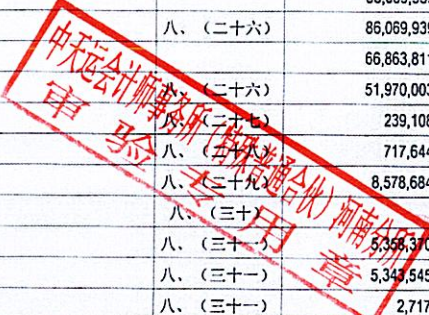 八、（二十六） 86,069,939
66,863,811
八、（二十六） 51,970,003
八、（二十七） 239,108
八、（二十八） 717,644
八、（二十九） 8,578,684
八、（三十）
八、（三十一） 5,358,370
八、（三十一） 5,343,545
八、（三十一） 2,717
中天运会计师事务所（特殊普通合伙）河南分所
审验专用章